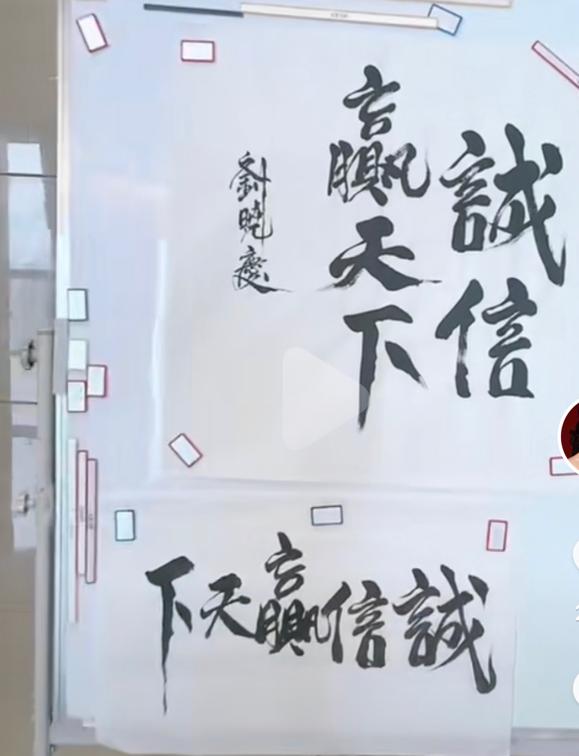 誠信
贏天下
劉曉慶
誠信贏天下